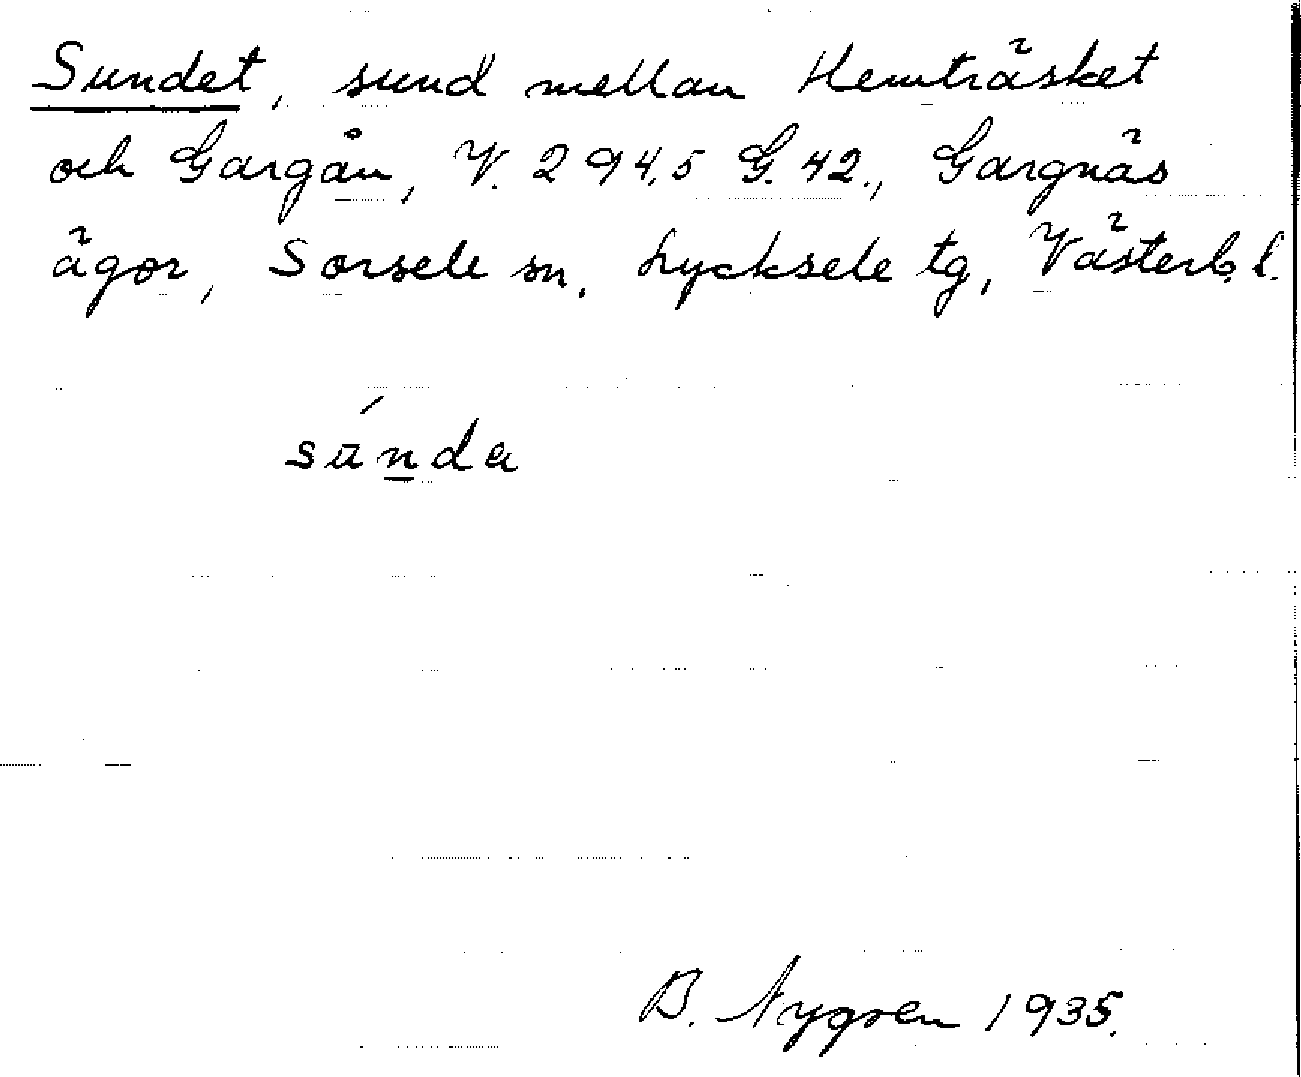 Sundet, sund mellan Hemträsket
och Gargån, V. 294,5 G. 42., Gargnäs
ägor, Sorsele sn, Lycksele tg, Västerb. l.
súnda
B. Nygren 1935.